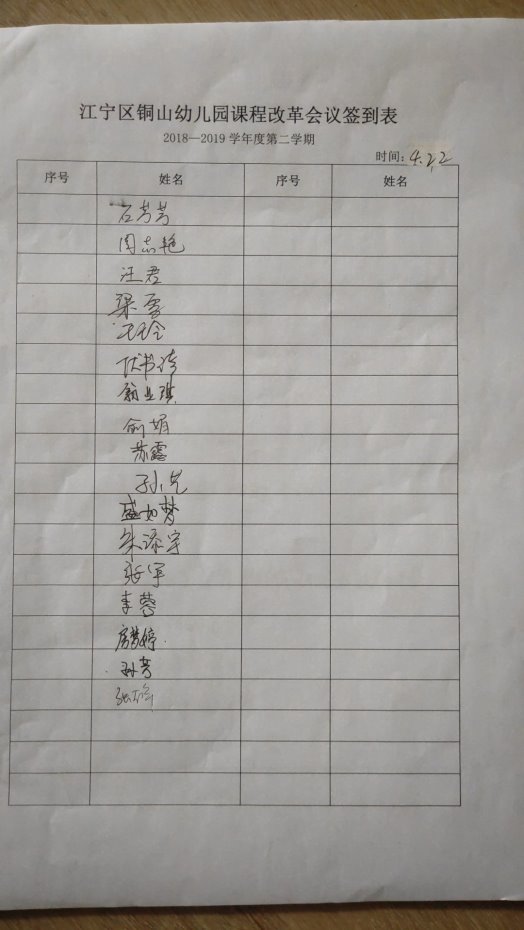 江宁区铜山幼儿园课程改革会议签到表
2018—2019 学年度第二学期
时间：4.22
序号 姓名 序号 姓名
石芳芳
周志艳
汪君
梁雪
王玲
伏书涛
翁业琪
俞娟
苏露
孙艺
盛如梦
朱添宇
张宇
李蓉
房梦婷
孙芳